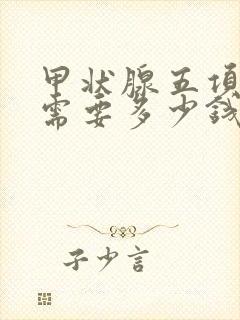 甲状腺五项
需要多少钱
子少言